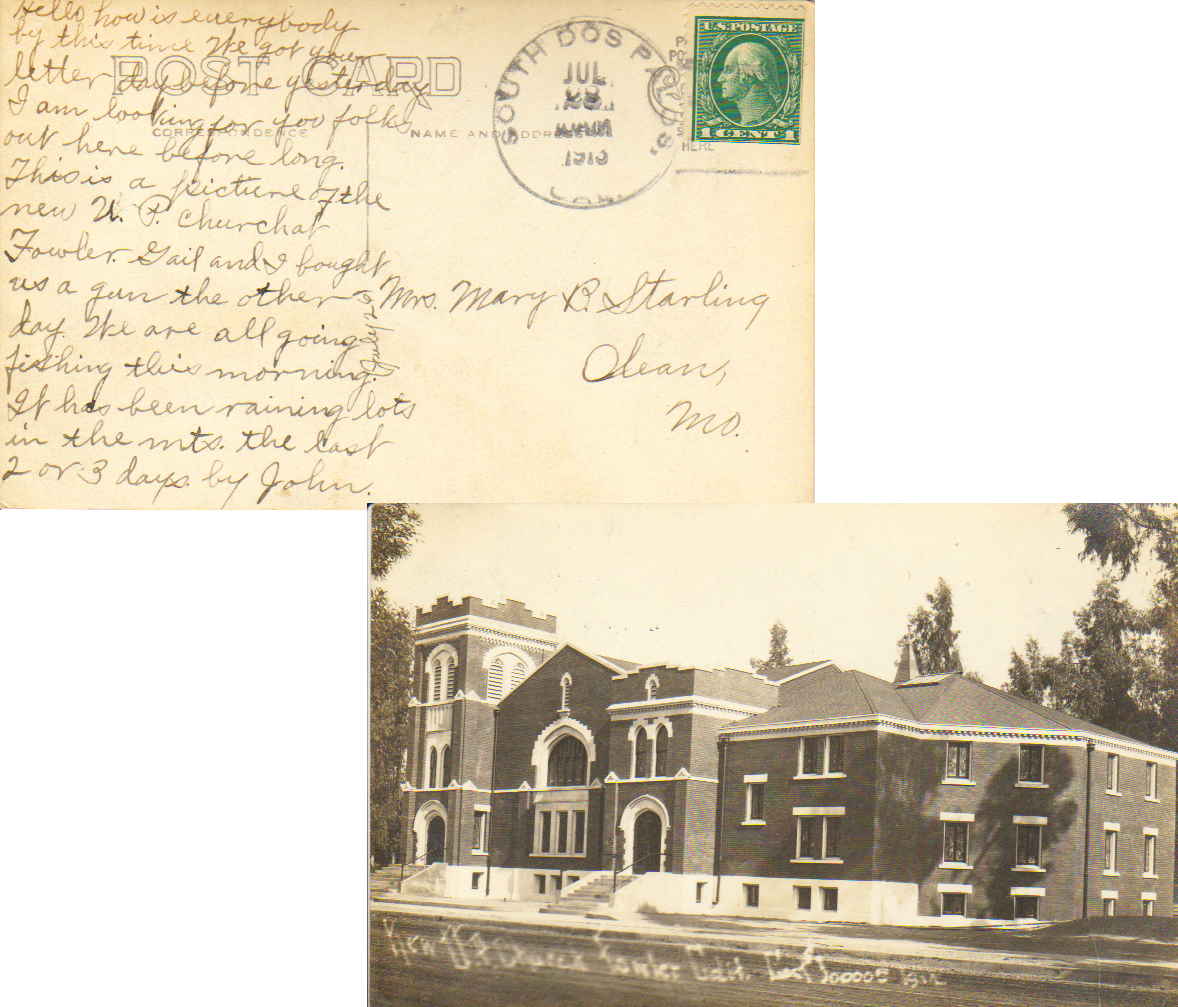 Hello how is everybody
by this time We got your
letter day before yesterday
I am looking for you folks
out here before long.
This is a picture of the
new U. P. Church at
Fowler. Gail and I bought
us a gun the other
day. We are all going
fishing this morning.
It has been raining lots
in the mts. the last
2 or 3 days. by John.
POST CARD
CORRESPONDENCE
NAME AND ADDRESS
SOUTH DOS PALOS,
JUL
28
1913
U.S. POSTAGE
1 CENT 1
HERE
Mrs. Mary B. Starling
Clean,
Mo.
New U.P. Church Fowler Calif. Cost